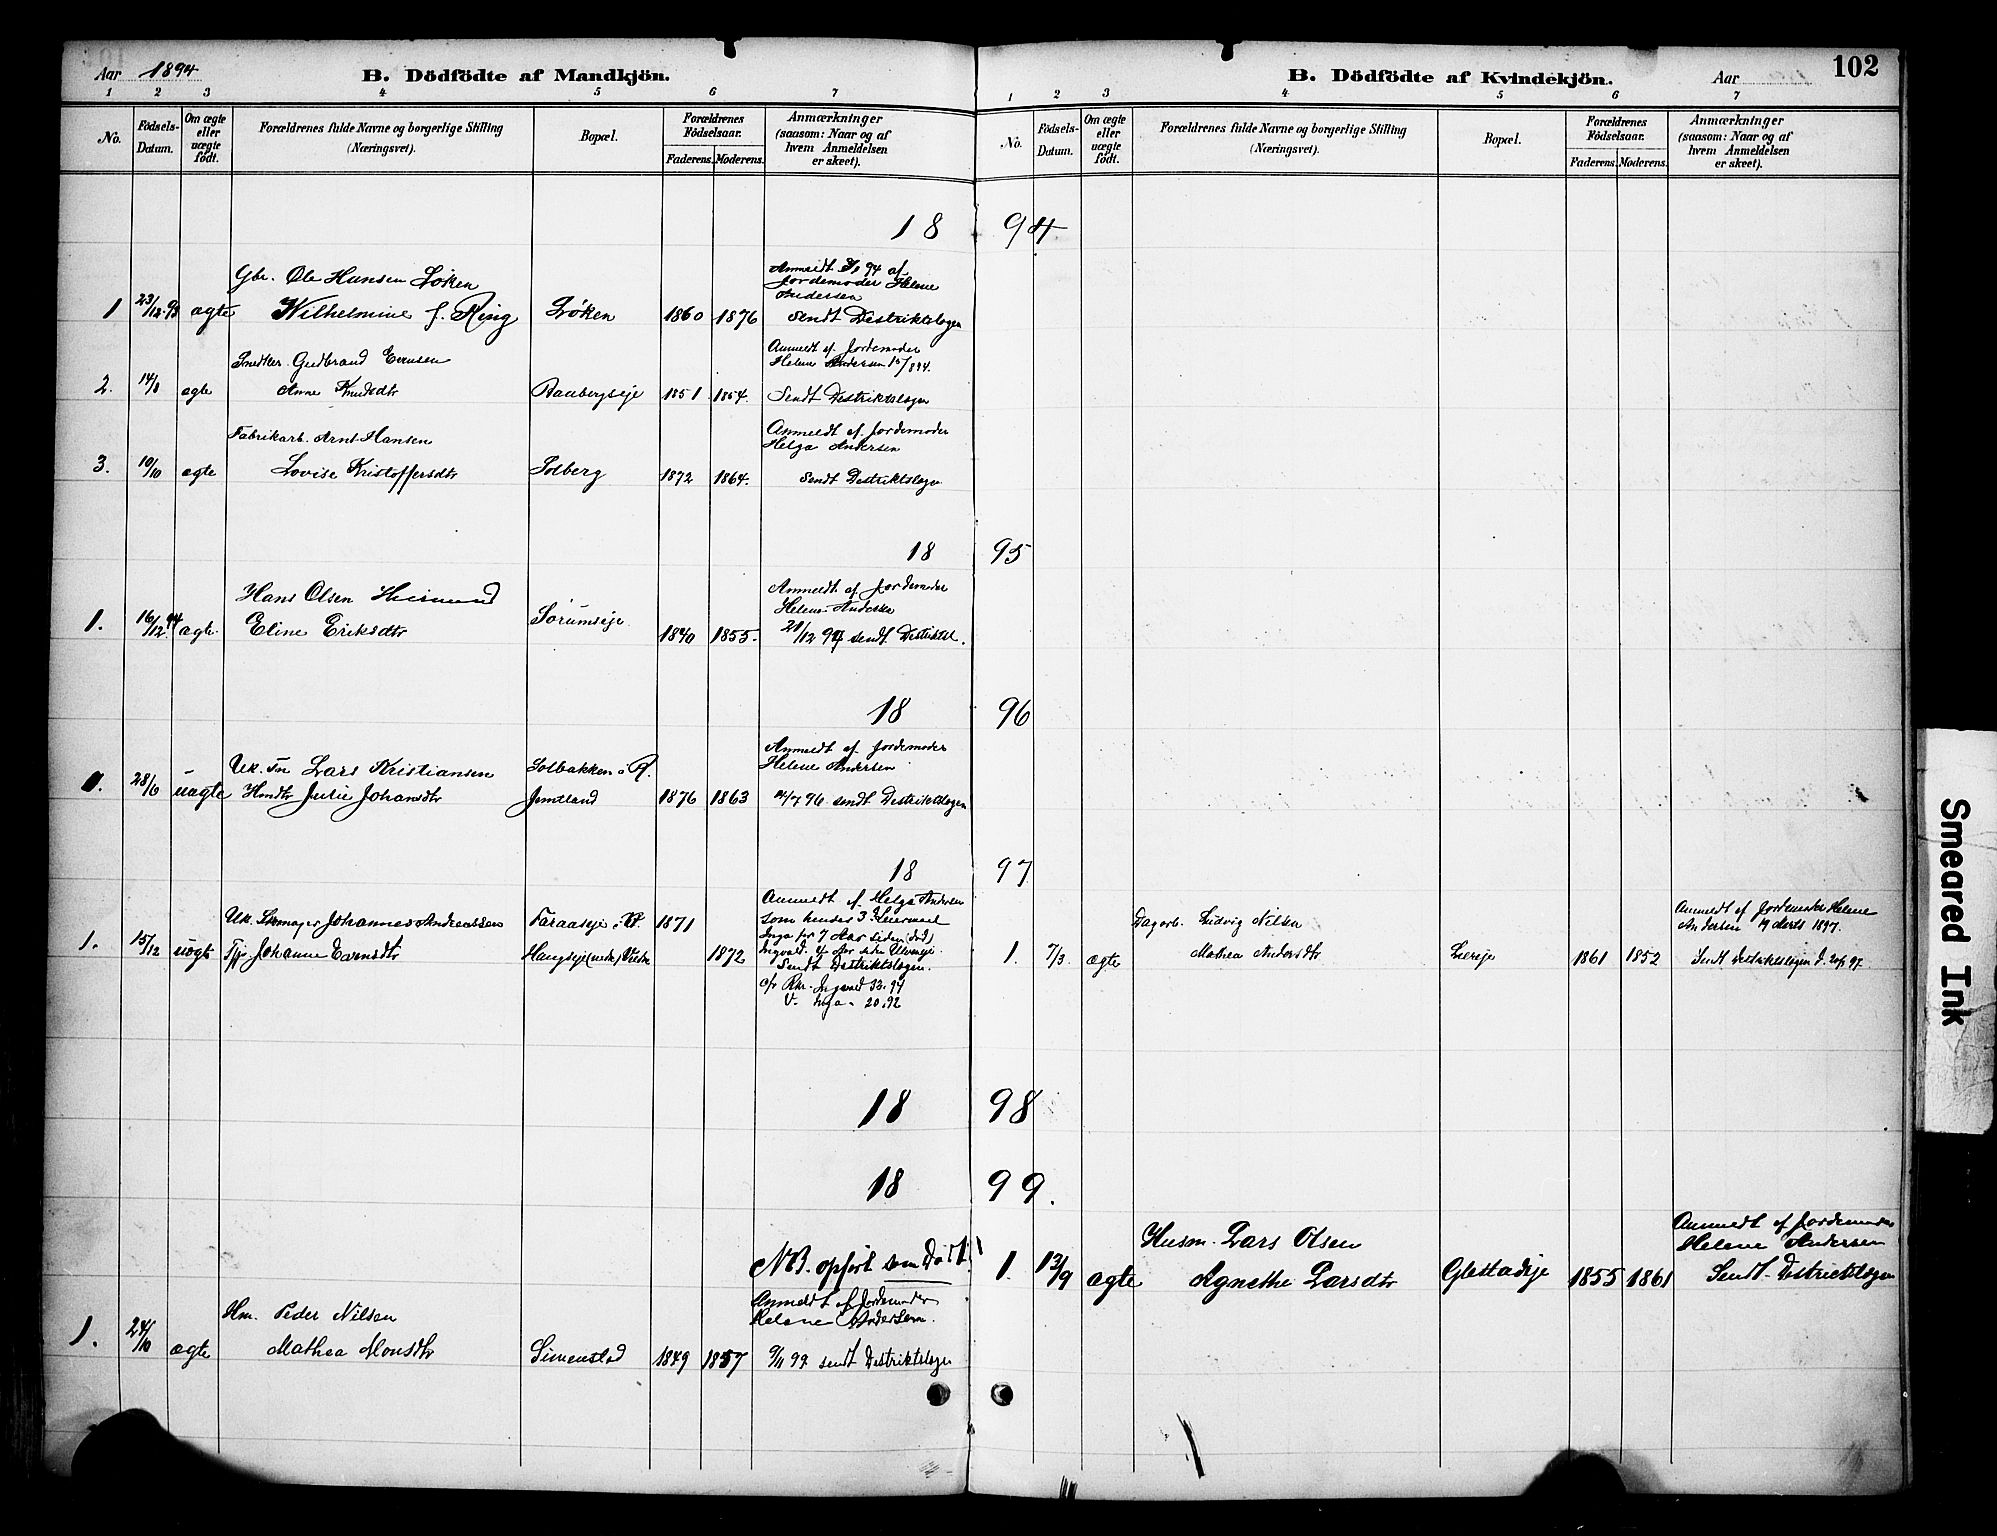 Aar 1894
B. Dödfödte af Mandkjön.
1 2 3 4 5 6 7
No.
Födsels-Datum.
Om ægte eller uægte födt.
Forældrenes fulde Navne og borgerlige Stilling (Næringsvei).
Bopæl.
Forældrenes Födselsaar.
Faderens. Moderens.
Anmærkninger (saasom: Naar og af hvem Anmeldelsen er skeet).
18
Gbr. Ole Hansen Löken
Anmeldt 94 af
Jordemoder Helene
Andersen
1 23/12 93 ægte Wilhelmine f. Ring Löken 1860 1876 Sendt Distriktslægen
Gudbrand Evensen
Anmeldt af Jordemoder
Helene Andersen 15/8 94.
2. 14/8 ægte Anne Knudsdtr 1851 1854. Sendt Distriktslægen
Fabrikarb. Arnt Hansen
Anmeldt af Jordemoder
Helga Andersen
3. 10/10 ægte Lovise Kristoffersdtr Solberg 1872 1864. Sendt Distriktslægen
18
Hans Olsen
Anmeldt af Jordemoder
Helene Anderse
1. 16/12 94 ægte Eline Eriksdtr Sörumseje 1840 1855. 21/12 94 sendt Distriktsl.
18
Uk. Lars Kristiansen Solbakken i R.
Anmeldt af Jordemoder
Helene Andersen
1. 28/6 uægte Julie Johansdtr Jemtland 1876 1863 /7 96 sendt Distriktslægen
18
Uk. Skomager Johannes Andreassen 1871
Anmeldt af Helga Andersen
som hendes 3die Leiermaal
Inga for 7 Aar siden (död)
1. 15/12 uægte Tjp. Johanne Evensdtr 1872
Sendt Distriktslægen.
Ingvald 33. 94
V. Inga 20. 92
18
18
NB. opfört som Dödf.
Hm. Peder Nilsen
Anmeldt af Jordemoder
Helene Andersen.
1. 24/10 ægte Mathea Monsdtr Simenstad 1849 1857 9/11 99 sendt Distriktslægen
102
B. Dödfödte af Kvindekjön.
Aar
1 2 3 4 5 6 7
No.
Födsels-Datum.
Om ægte eller uægte födt.
Forældrenes fulde Navne og borgerlige Stilling (Næringsvei).
Bopæl.
Forældrenes Födselsaar.
Faderens. Moderens.
Anmærkninger (saasom: Naar og af hvem Anmeldelsen er skeet).
94
95
96
97
Dagarb. Ludvig Nilsen
Anmeldt af Jordemoder Helene
Andersen 19 Marts 1897.
1. 7/3 ægte Mathea Andersdtr 1861 1852 Sendt Distriktslægen
98
99.
Husm. Lars Olsen
Anmeldt af Jordemoder
Helene Andersen
1. 13/9 ægte Agnethe Larsdtr Glestadeje 1855 1861 Sendt Distriktslægen
Smeared Ink